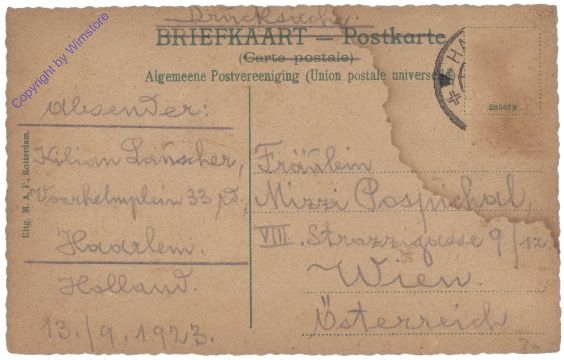 Drucksache.
BRIEFKAART — Postkarte
(Carte postale)
Algemeene Postvereeniging (Union postale universelle)
Copyright by Wimstore
HA
985679
Absender:
Kilian Lauscher,
Voorhelmplein 33 rd.
Haarlem.
Holland.
13./9.1923.
Uitg. M. A. F. Rotterdam.
Fräulein
Mizzi Pospichal
VIII. Strozzigasse 9/12
Wien.
Österreich